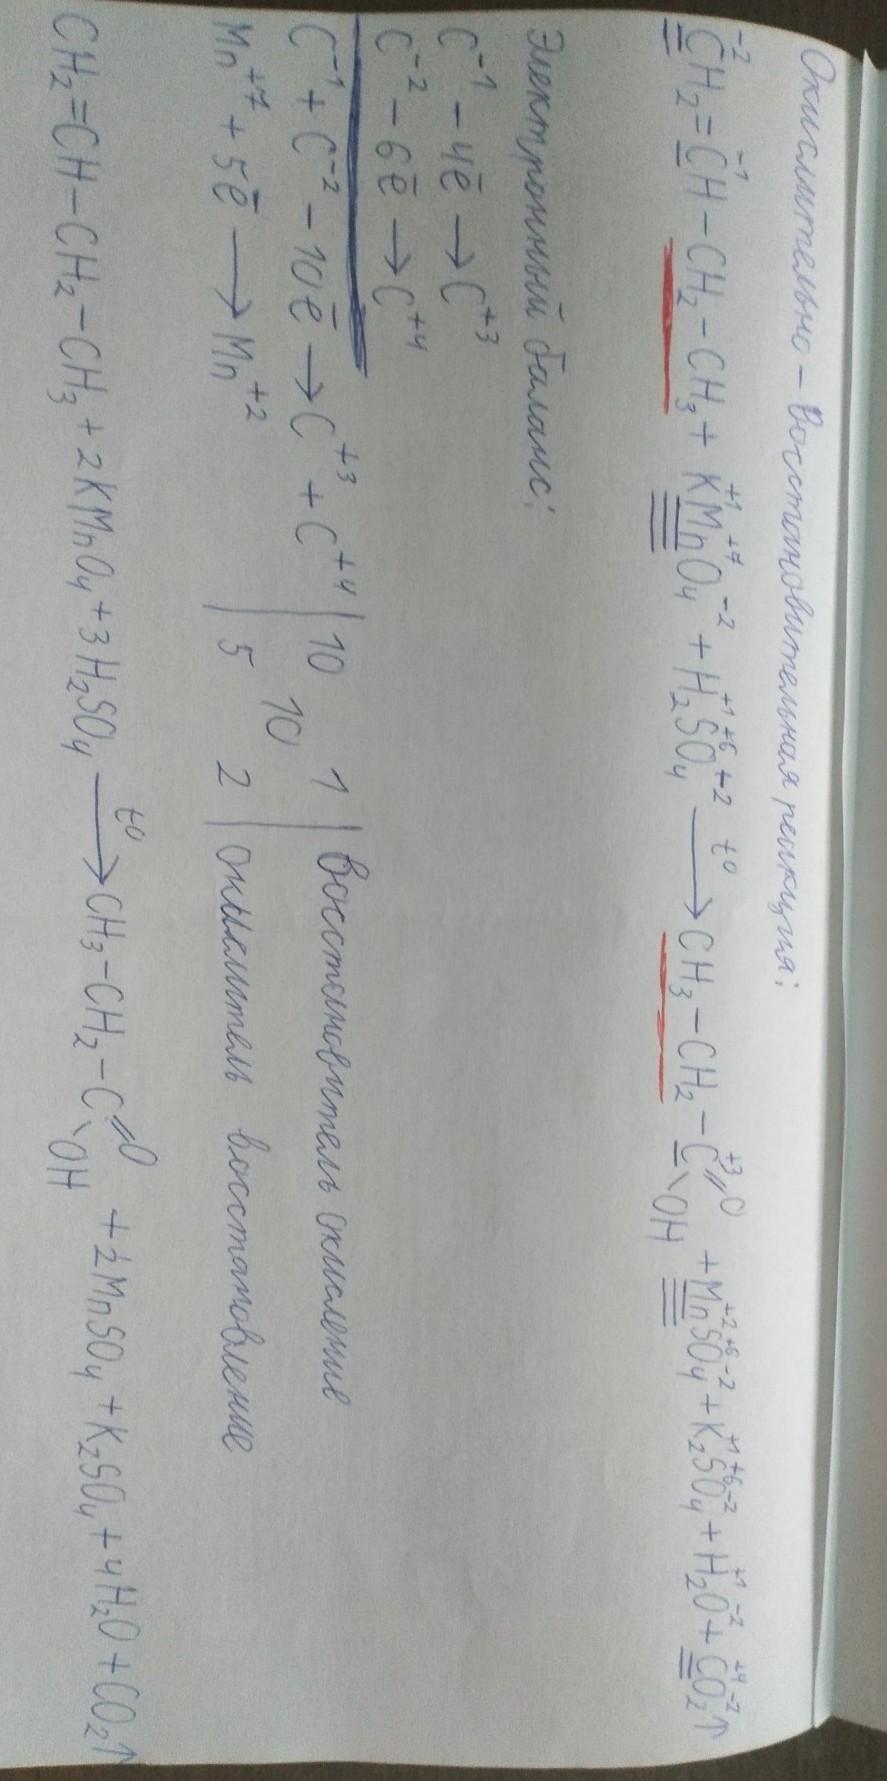 Окислительно-Восстановительная реакция:
C⁻²H₂=C⁻¹H-CH₂-CH₃ + K⁺¹Mn⁺⁷O₄⁻² + H₂⁺¹S⁺⁶O₄⁻² t° → CH₃-CH₂-C⁺³=O-OH + Mn⁺²S⁺⁶O₄⁻² + K₂⁺¹S⁺⁶O₄⁻² + H₂⁺¹O⁻² + C⁺⁴O₂⁻²↑
Электронный баланс:
C⁻¹ - 4ē → C⁺³
C⁻² - 6ē → C⁺⁴
C⁻¹ + C⁻² - 10ē → C⁺³ + C⁺⁴ | 10 10 1 | восстановитель окисление
Mn⁺⁷ + 5ē → Mn⁺² | 5 2 | окислитель восстановление
CH₂=CH-CH₂-CH₃ + 2KMnO₄ + 3H₂SO₄ t° → CH₃-CH₂-C=O-OH + 2MnSO₄ + K₂SO₄ + 4H₂O + CO₂↑